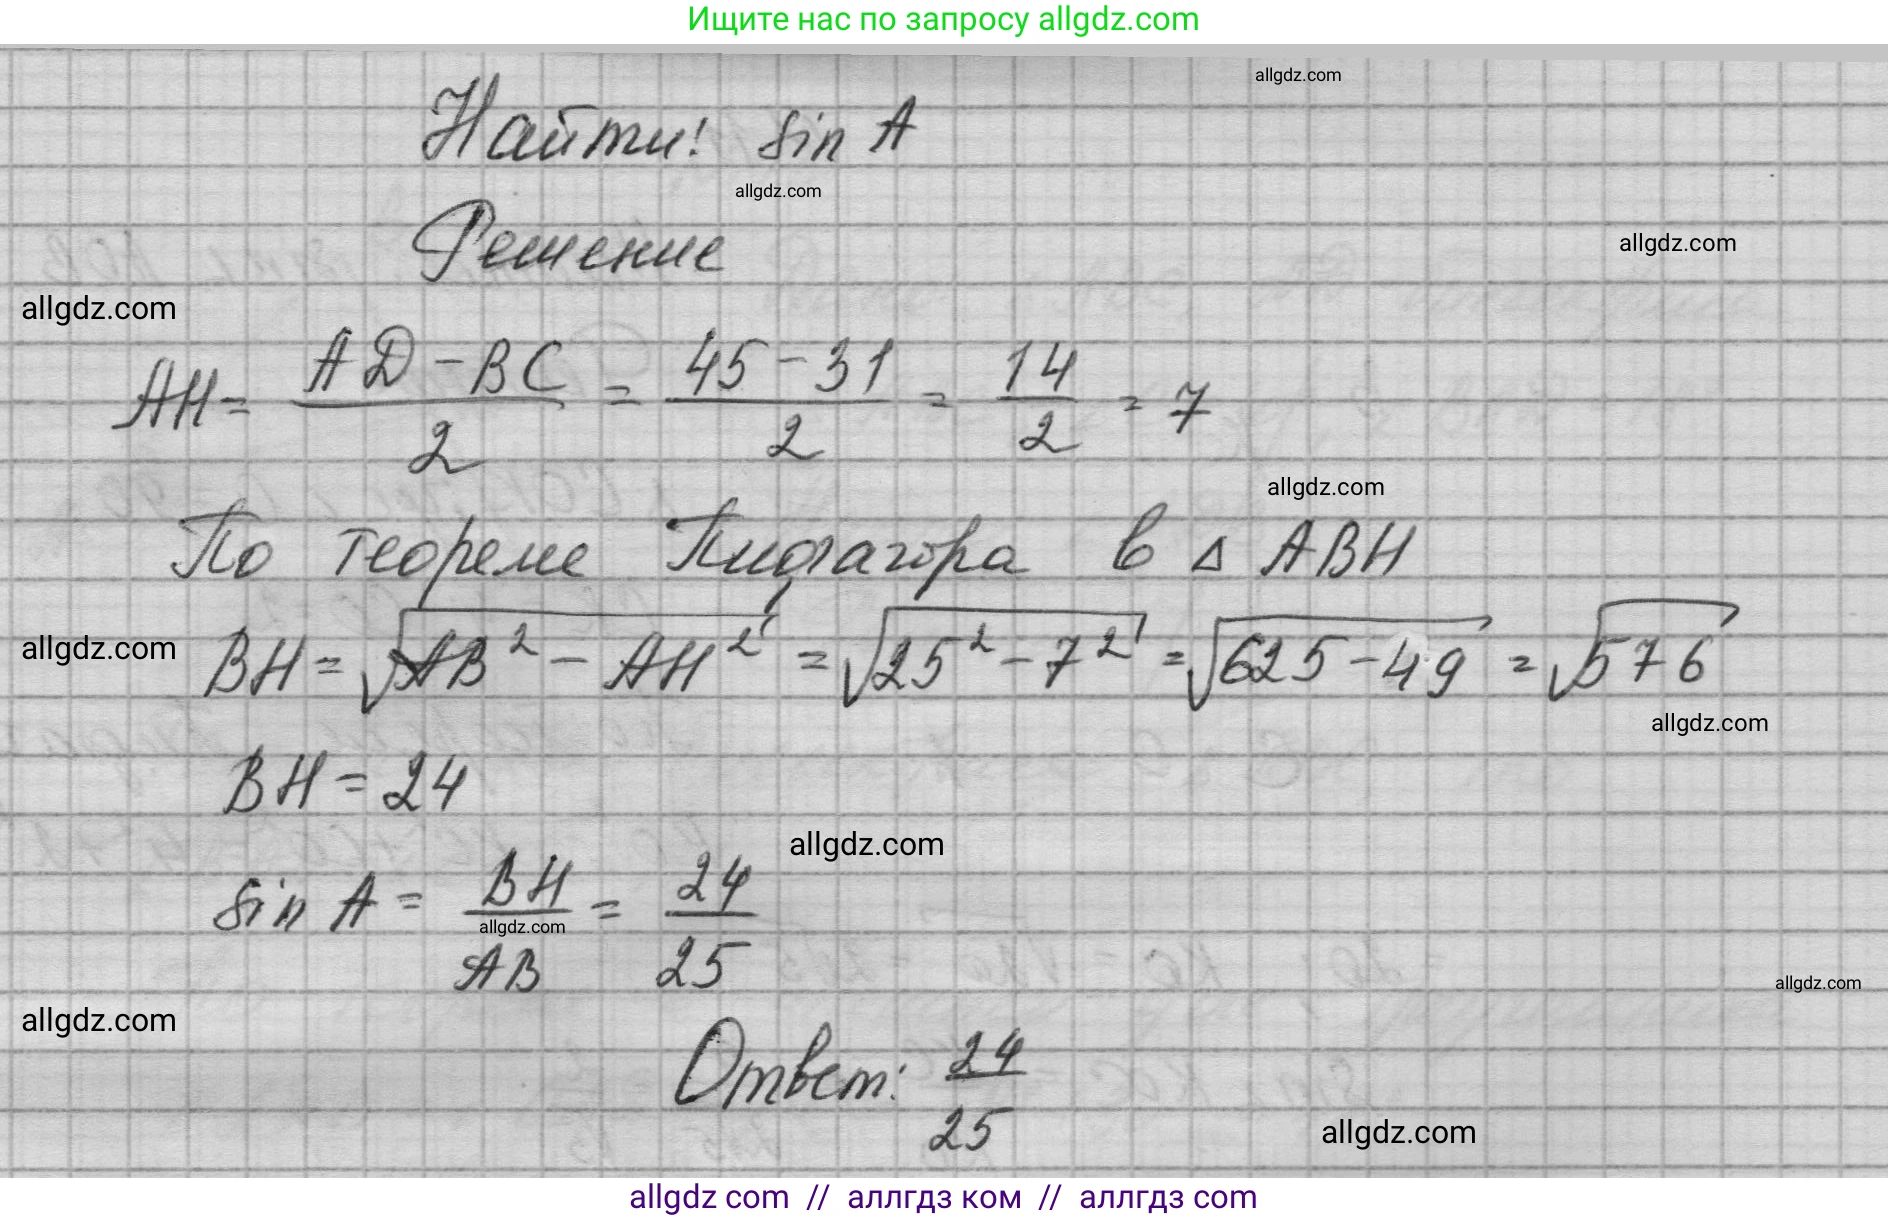 Ищите нас по запросу allgdz.com
allgdz.com
Найти: sin A
allgdz.com
Решение
allgdz.com
allgdz.com
AH = (AD - BC)/2 = (45 - 31)/2 = 14/2 = 7
allgdz.com
По теореме Пифагора в Δ ABH
allgdz.com
BH = √(AB² - AH²) = √(25² - 7²) = √(625 - 49) = √576
allgdz.com
BH = 24
allgdz.com
sin A = BH/AB = 24/25
allgdz.com
allgdz.com
allgdz.com
Ответ: 24/25
allgdz.com
allgdz com // аллгдз ком // аллгдз com